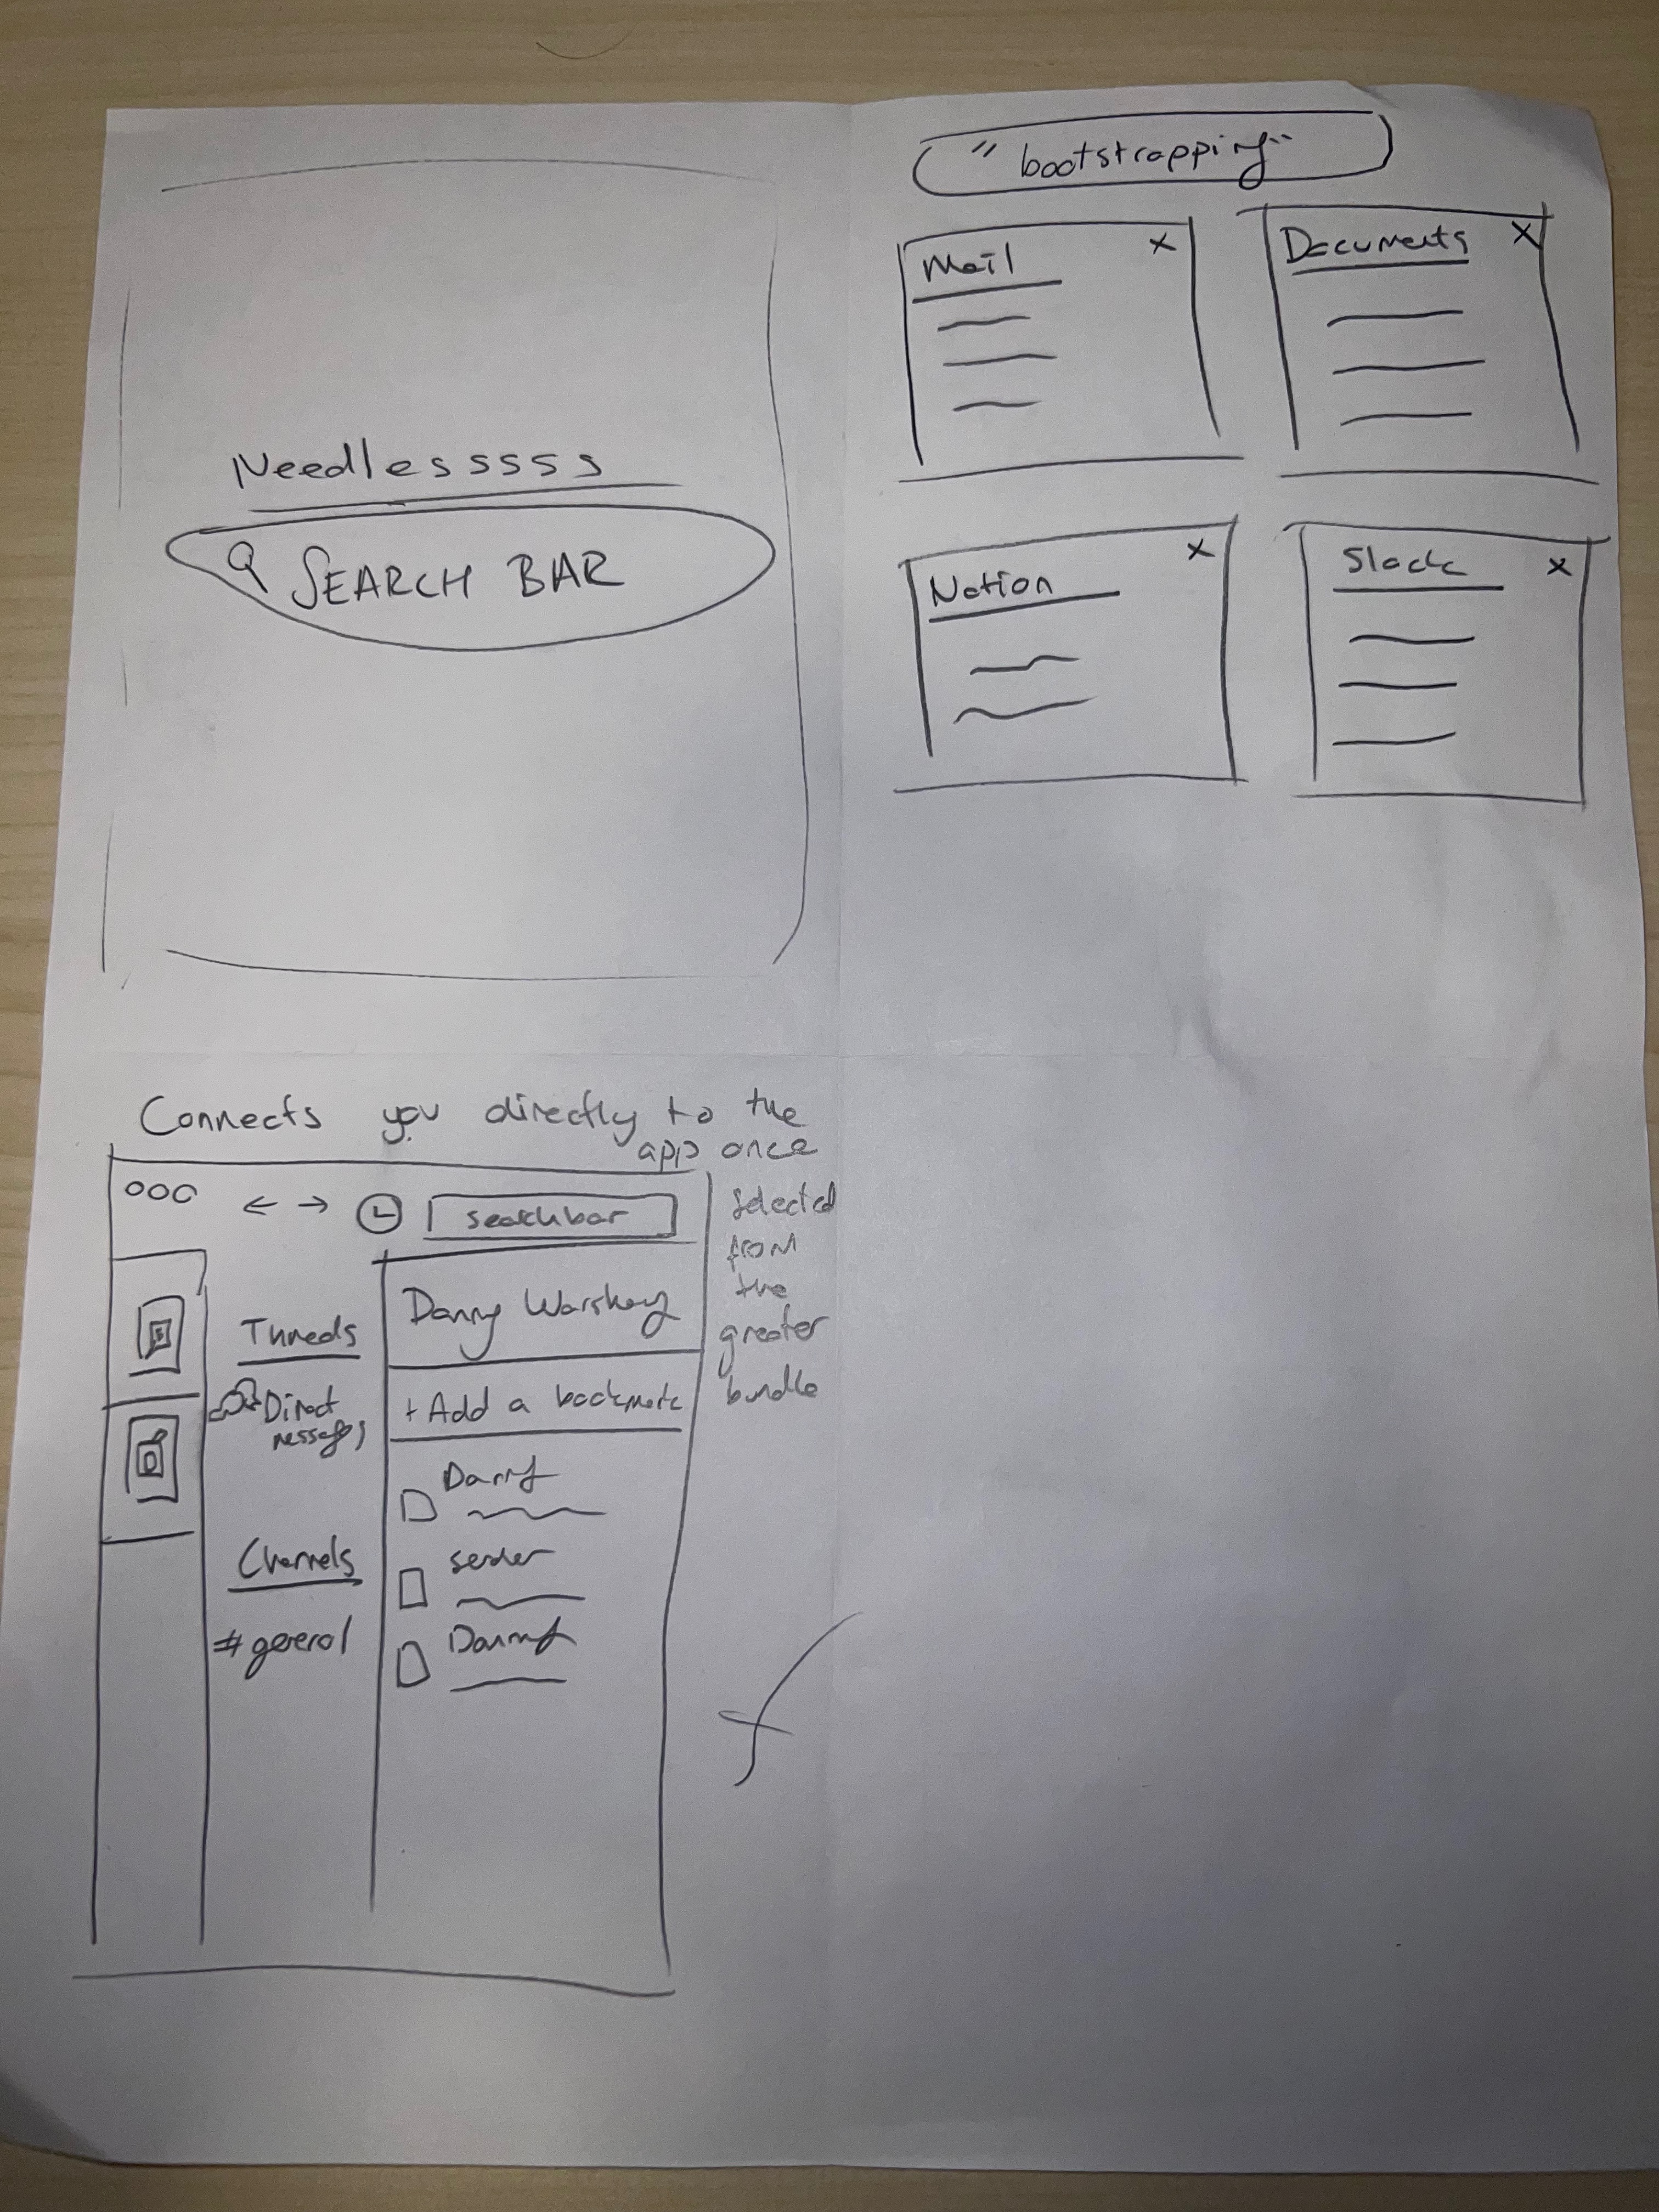 Needlesssss
SEARCH BAR
"bootstrapping"
Mail x
Documents x
Notion x
Slack x
Connects you directly to the
app once
selected
from
the
greater
bundle
searchbar
Threds
Direct
messages
Channels
#general
Danny
+ Add a bookmark
Danny
sender
Danny